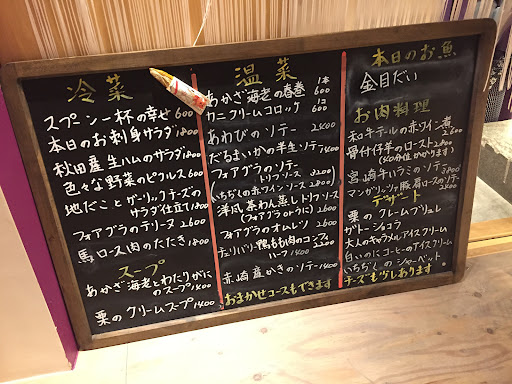 冷菜
スプーン一杯の幸せ 600
本日のお刺身サラダ 1800
秋田産生ハムのサラダ 1800
色々な野菜のピクルス 600
地だことガーリックチーズの
サラダ仕立て 1800
フォアグラのテリーヌ 2600
馬ロース肉のたたき 1800
スープ
あかざ海老とわたりがに
のスープ 1400
栗のクリームスープ 1400
温菜
あかざ海老の春巻 1本 600
カニクリームコロッケ 1コ 600
あわびのソテー 2400
だるまいかの半生ソテー 1400
フォアグラのソテー
トリフソース 3200
いちじくの赤ワインソース 2800
洋風茶わん蒸しトリフソース
(フォアグラorうに) 2600
フォアグラのオムレツ 2600
チェリバリー鴨もも肉のコンフィ
ハーフ 1400
赤崎産かきのソテー 1400
おまかせコースもできます
本日のお魚
金目だい
お肉料理
和牛テールの赤ワイン煮 2600
骨付仔羊のロースト 2800
(40分位かかります)
宮崎牛ハラミのソテー 3800
マンガリッツァ豚肩ロースのソテー 2400
デザート
栗のクレームブリュレ
ガトーショコラ
大人のキャラメルアイスクリーム
白いのにコーヒーのアイスクリーム
いちぢくのシャーベット
チーズも少しあります